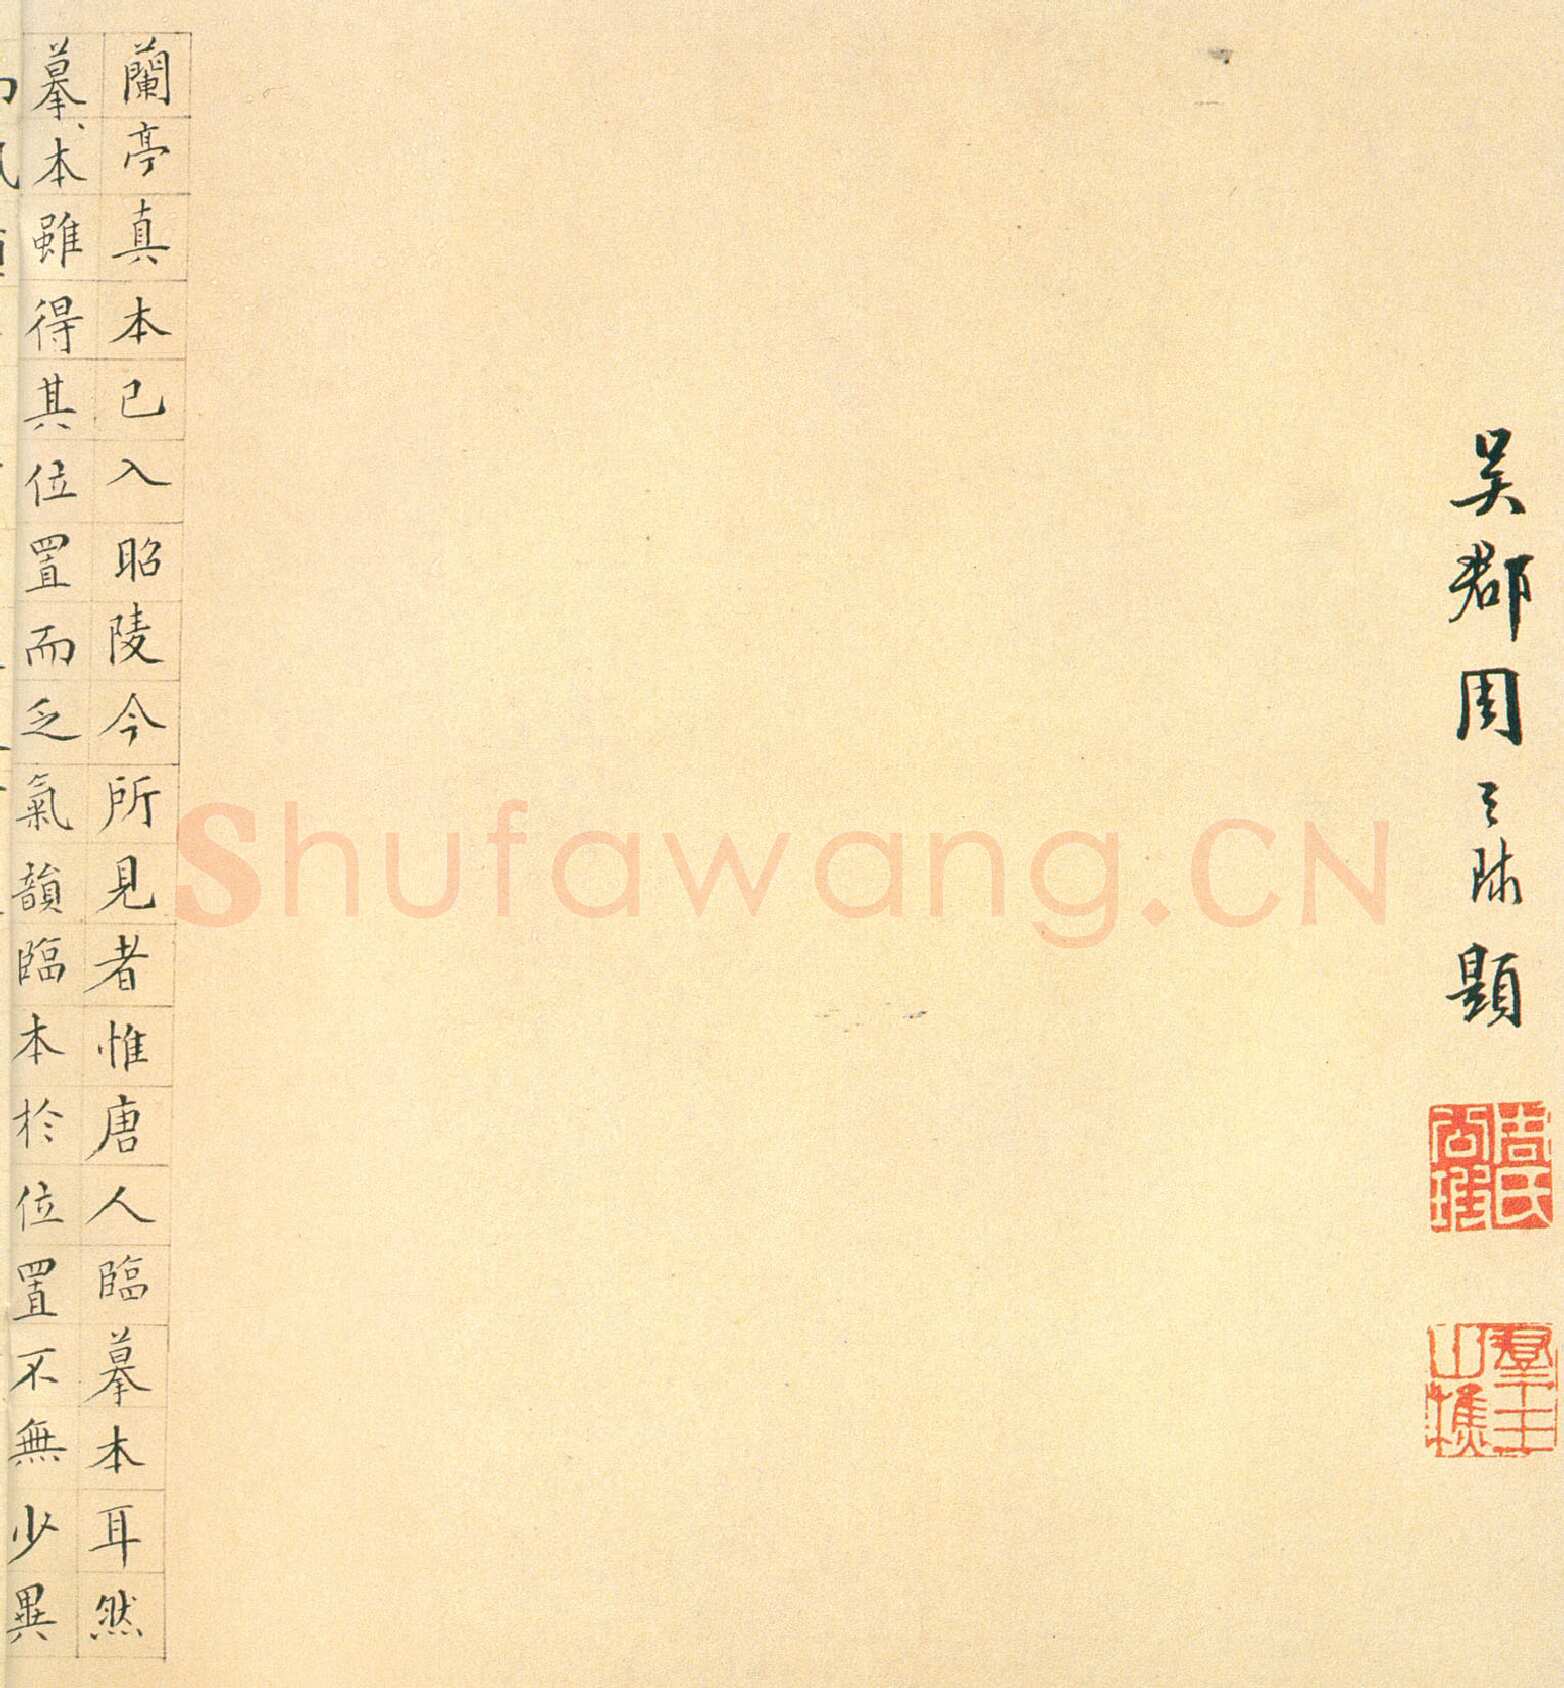 吳郡周天球題
周氏
公瑕
羣玉
山樵
蘭亭真本已入昭陵今所見者惟唐人臨摹本耳然
摹本雖得其位置而乏氣韻臨本於位置不無少異
Shufawang.CN